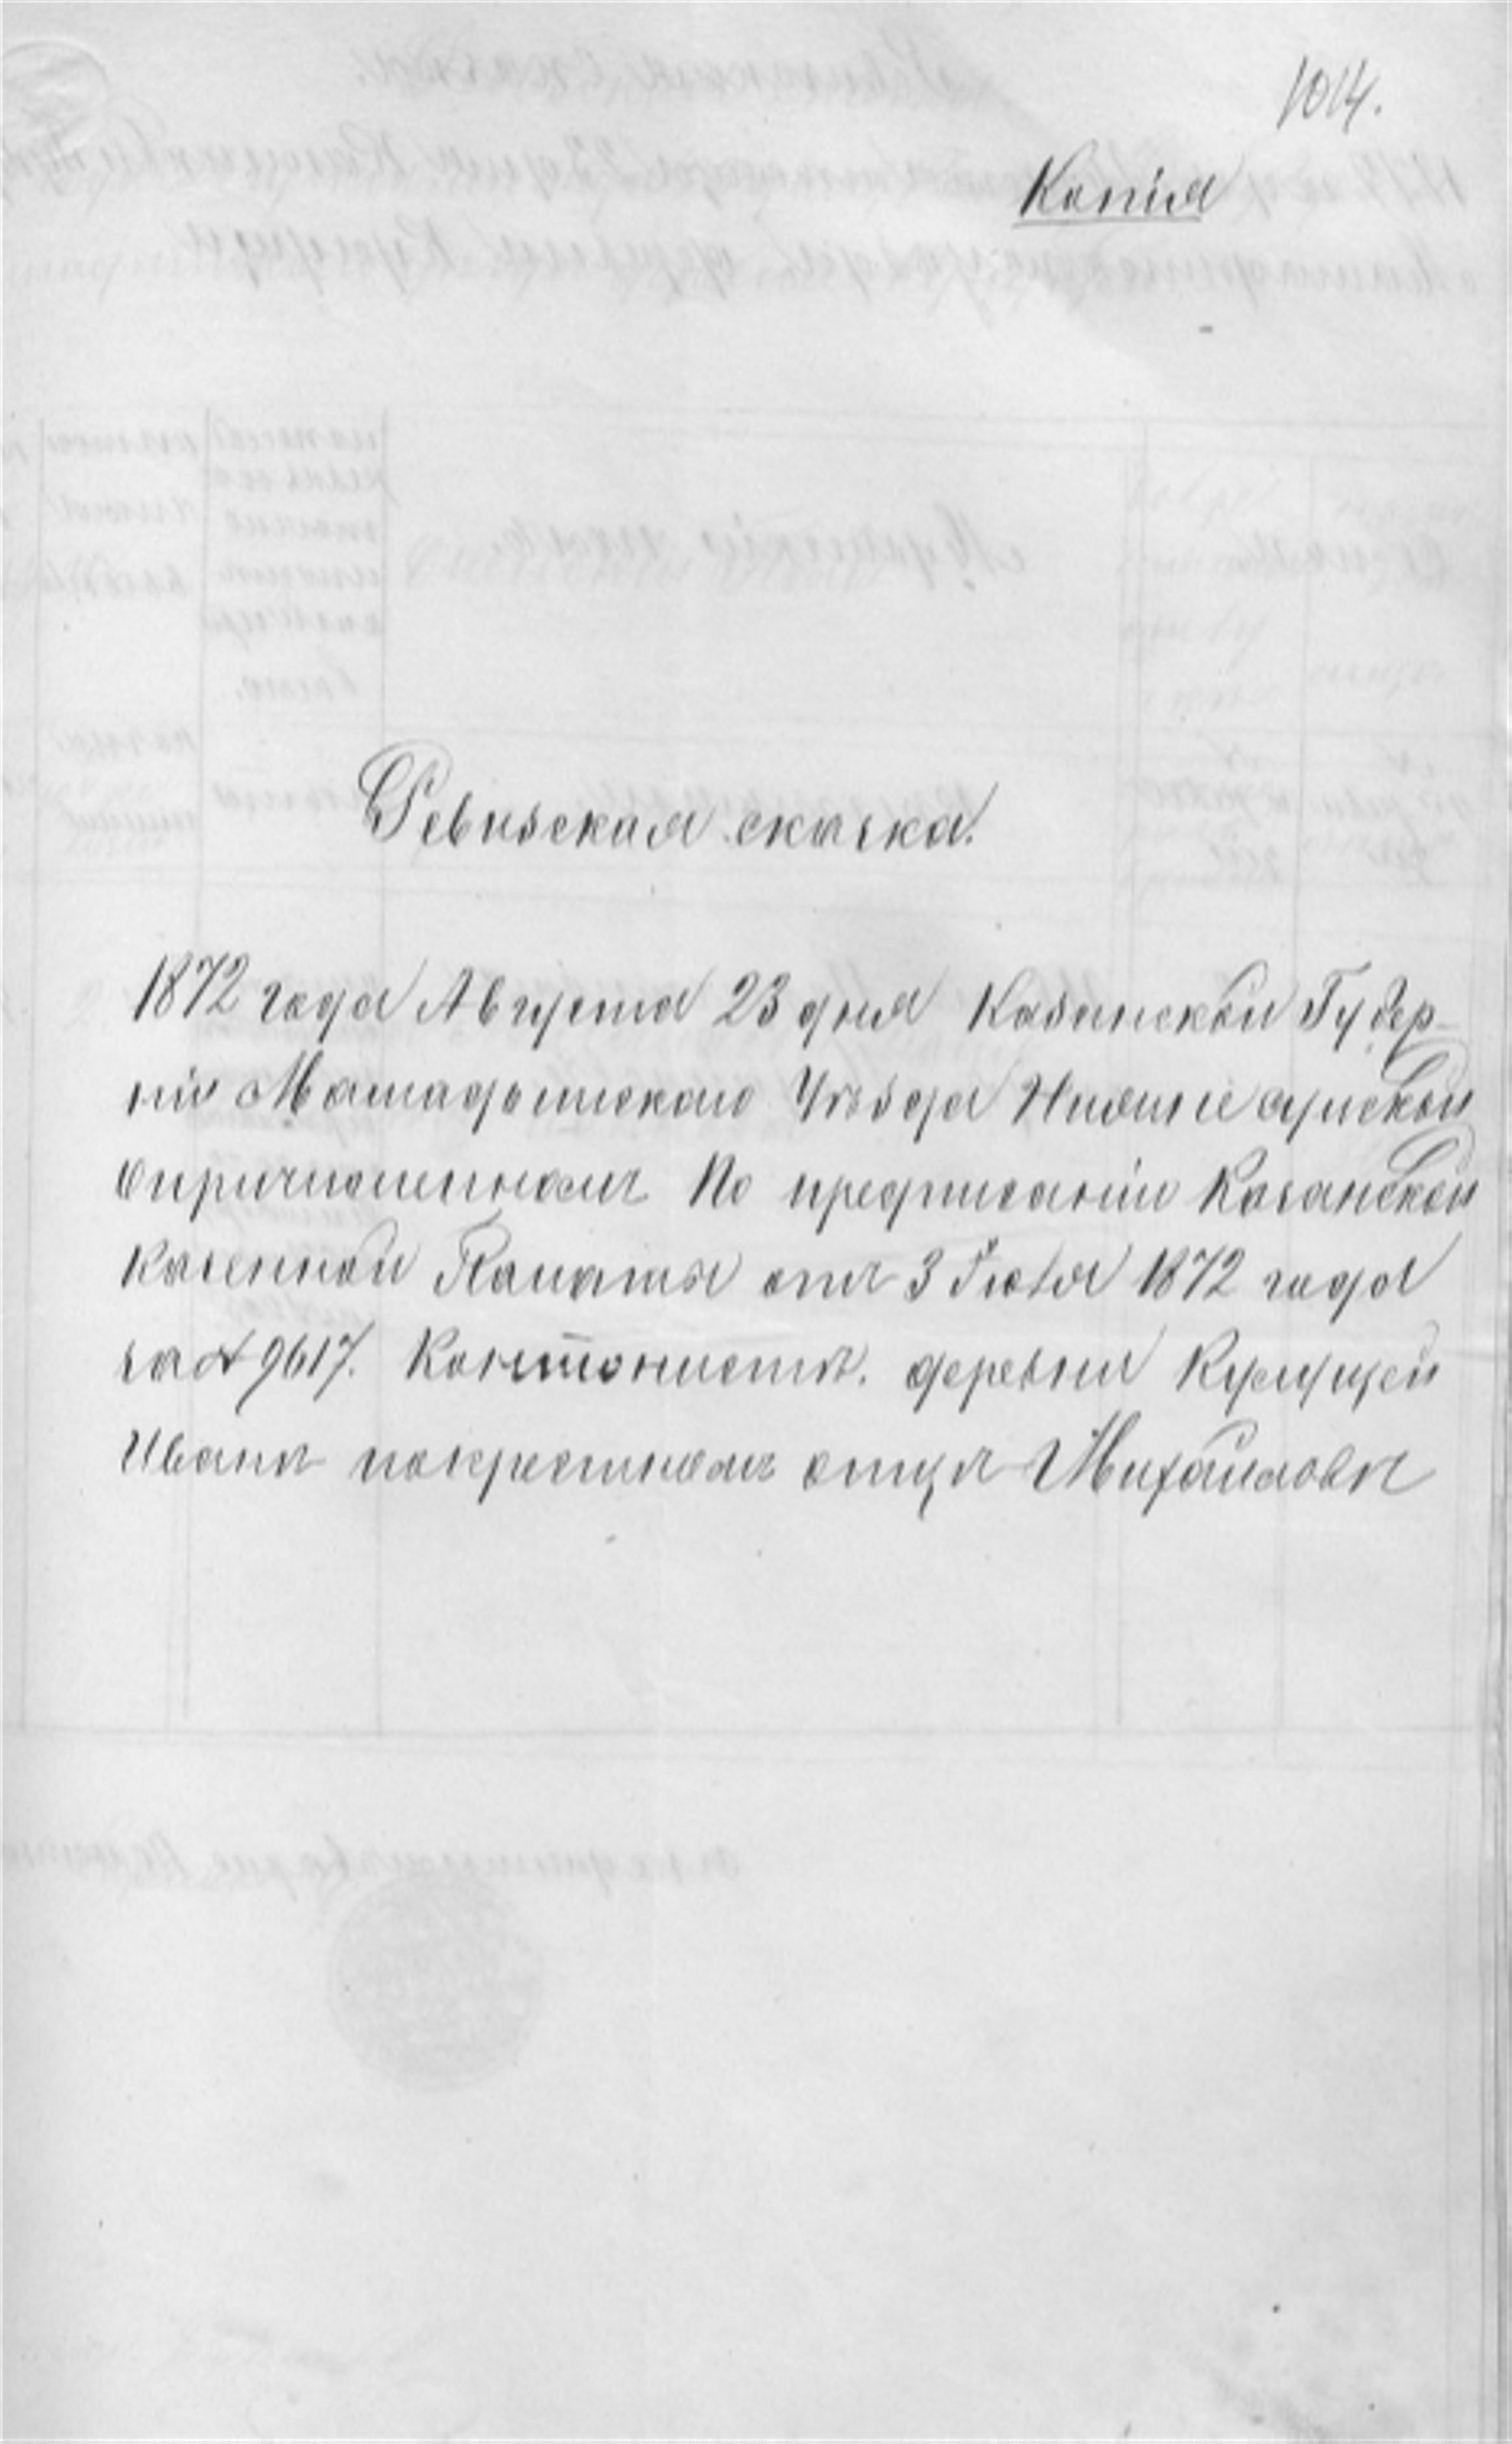 1014.
Копія
Ревизская скаска.
1872 года Августа 23 дня Казанской Губер-
ніи Мамадышскаго Уѣзда
опричисленномъ По предписанію Казанской
Казенной Палаты отъ 3 Іюля 1872 года
за № 9617. Кантонистъ. деревни
Иванъ покрестномъ отцѣ Михайловъ